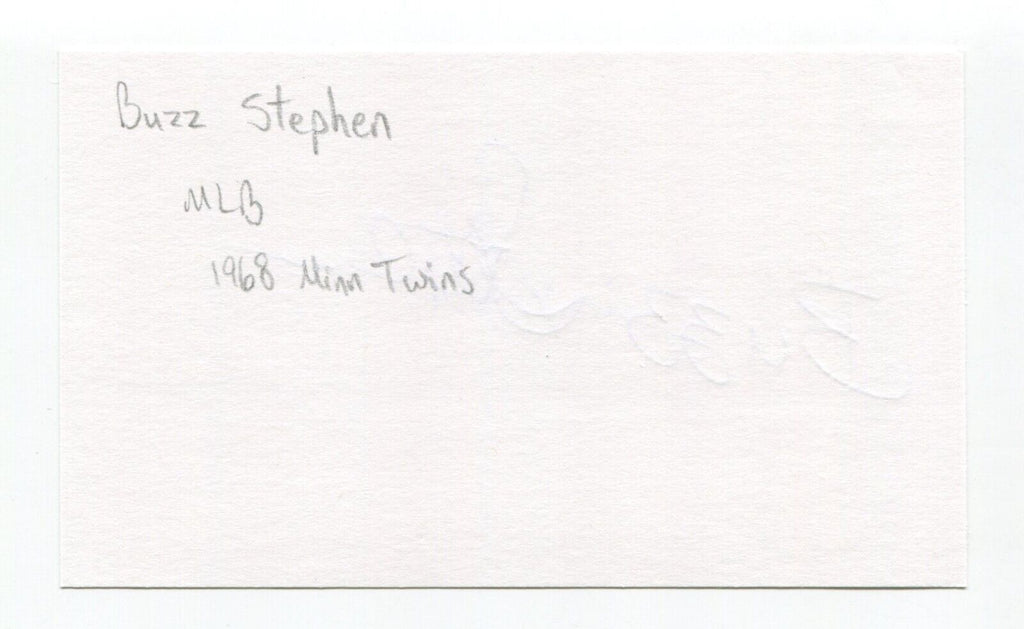 Buzz Stephen
MLB
1968 Minn Twins